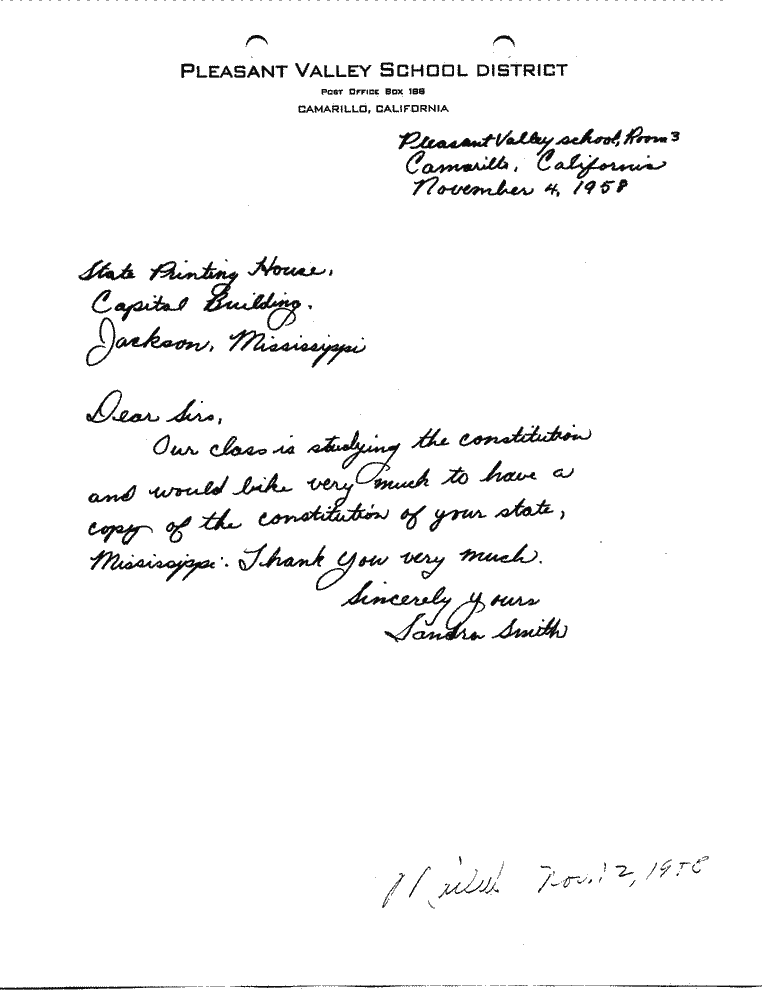 PLEASANT VALLEY SCHOOL DISTRICT
POST OFFICE BOX 188
CAMARILLO, CALIFORNIA
Pleasant Valley school, Room 3
Camarillo, California
November 4, 1958
State Printing House,
Capital Building.
Jackson, Mississippi
Dear Sirs,
Our class is studying the constitution
and would like very much to have a
copy of the constitution of your state,
Mississippi. Thank you very much.
Sincerely yours
Sandra Smith
Nov. 12, 1958